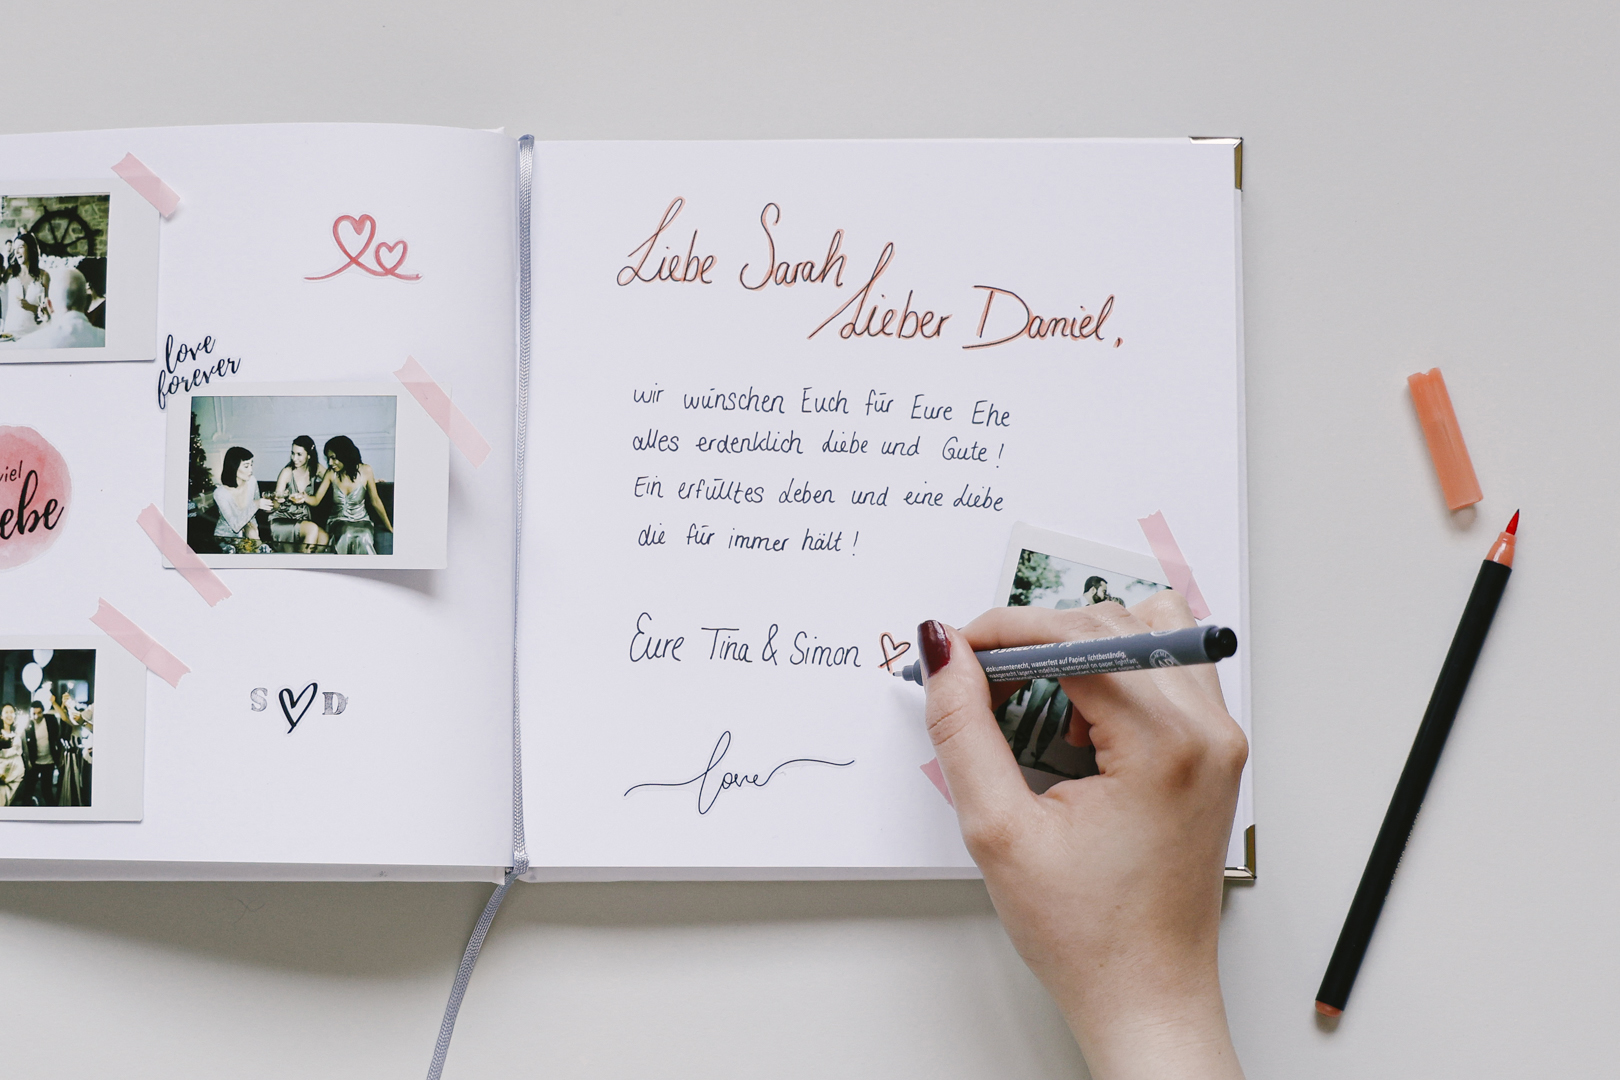 love
forever
viel
S D
Liebe Sarah
Lieber Daniel,
wir wünschen Euch für Eure Ehe
alles erdenklich Liebe und Gute!
Ein erfülltes Leben und eine Liebe
die für immer hält!
Eure Tina & Simon
love
dokumentenecht, wasserfest auf Papier, lichtbeständig,
waagerecht lagern • indelible, waterproof on paper, lightfast,